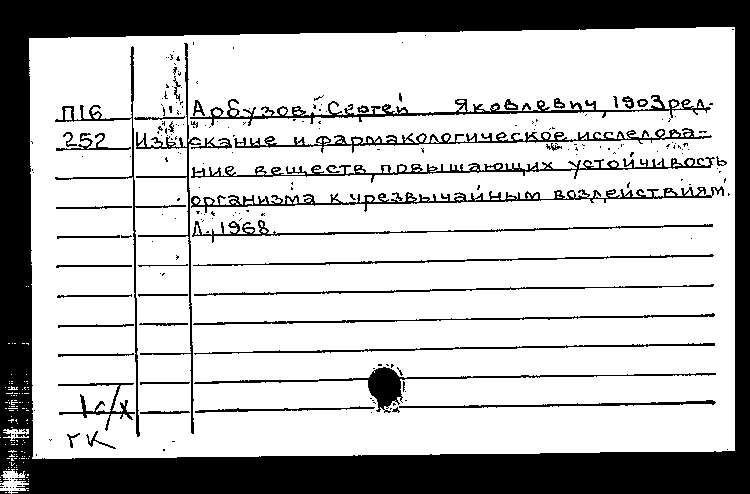 П16 Арбузов, Сергей Яковлевич, 1903 ред.
252 Изыскание и фармакологическое исследова-
ние веществ, повышающих устойчивость
организма к чрезвычайным воздействиям.
Л., 1968.
1с/х
гк